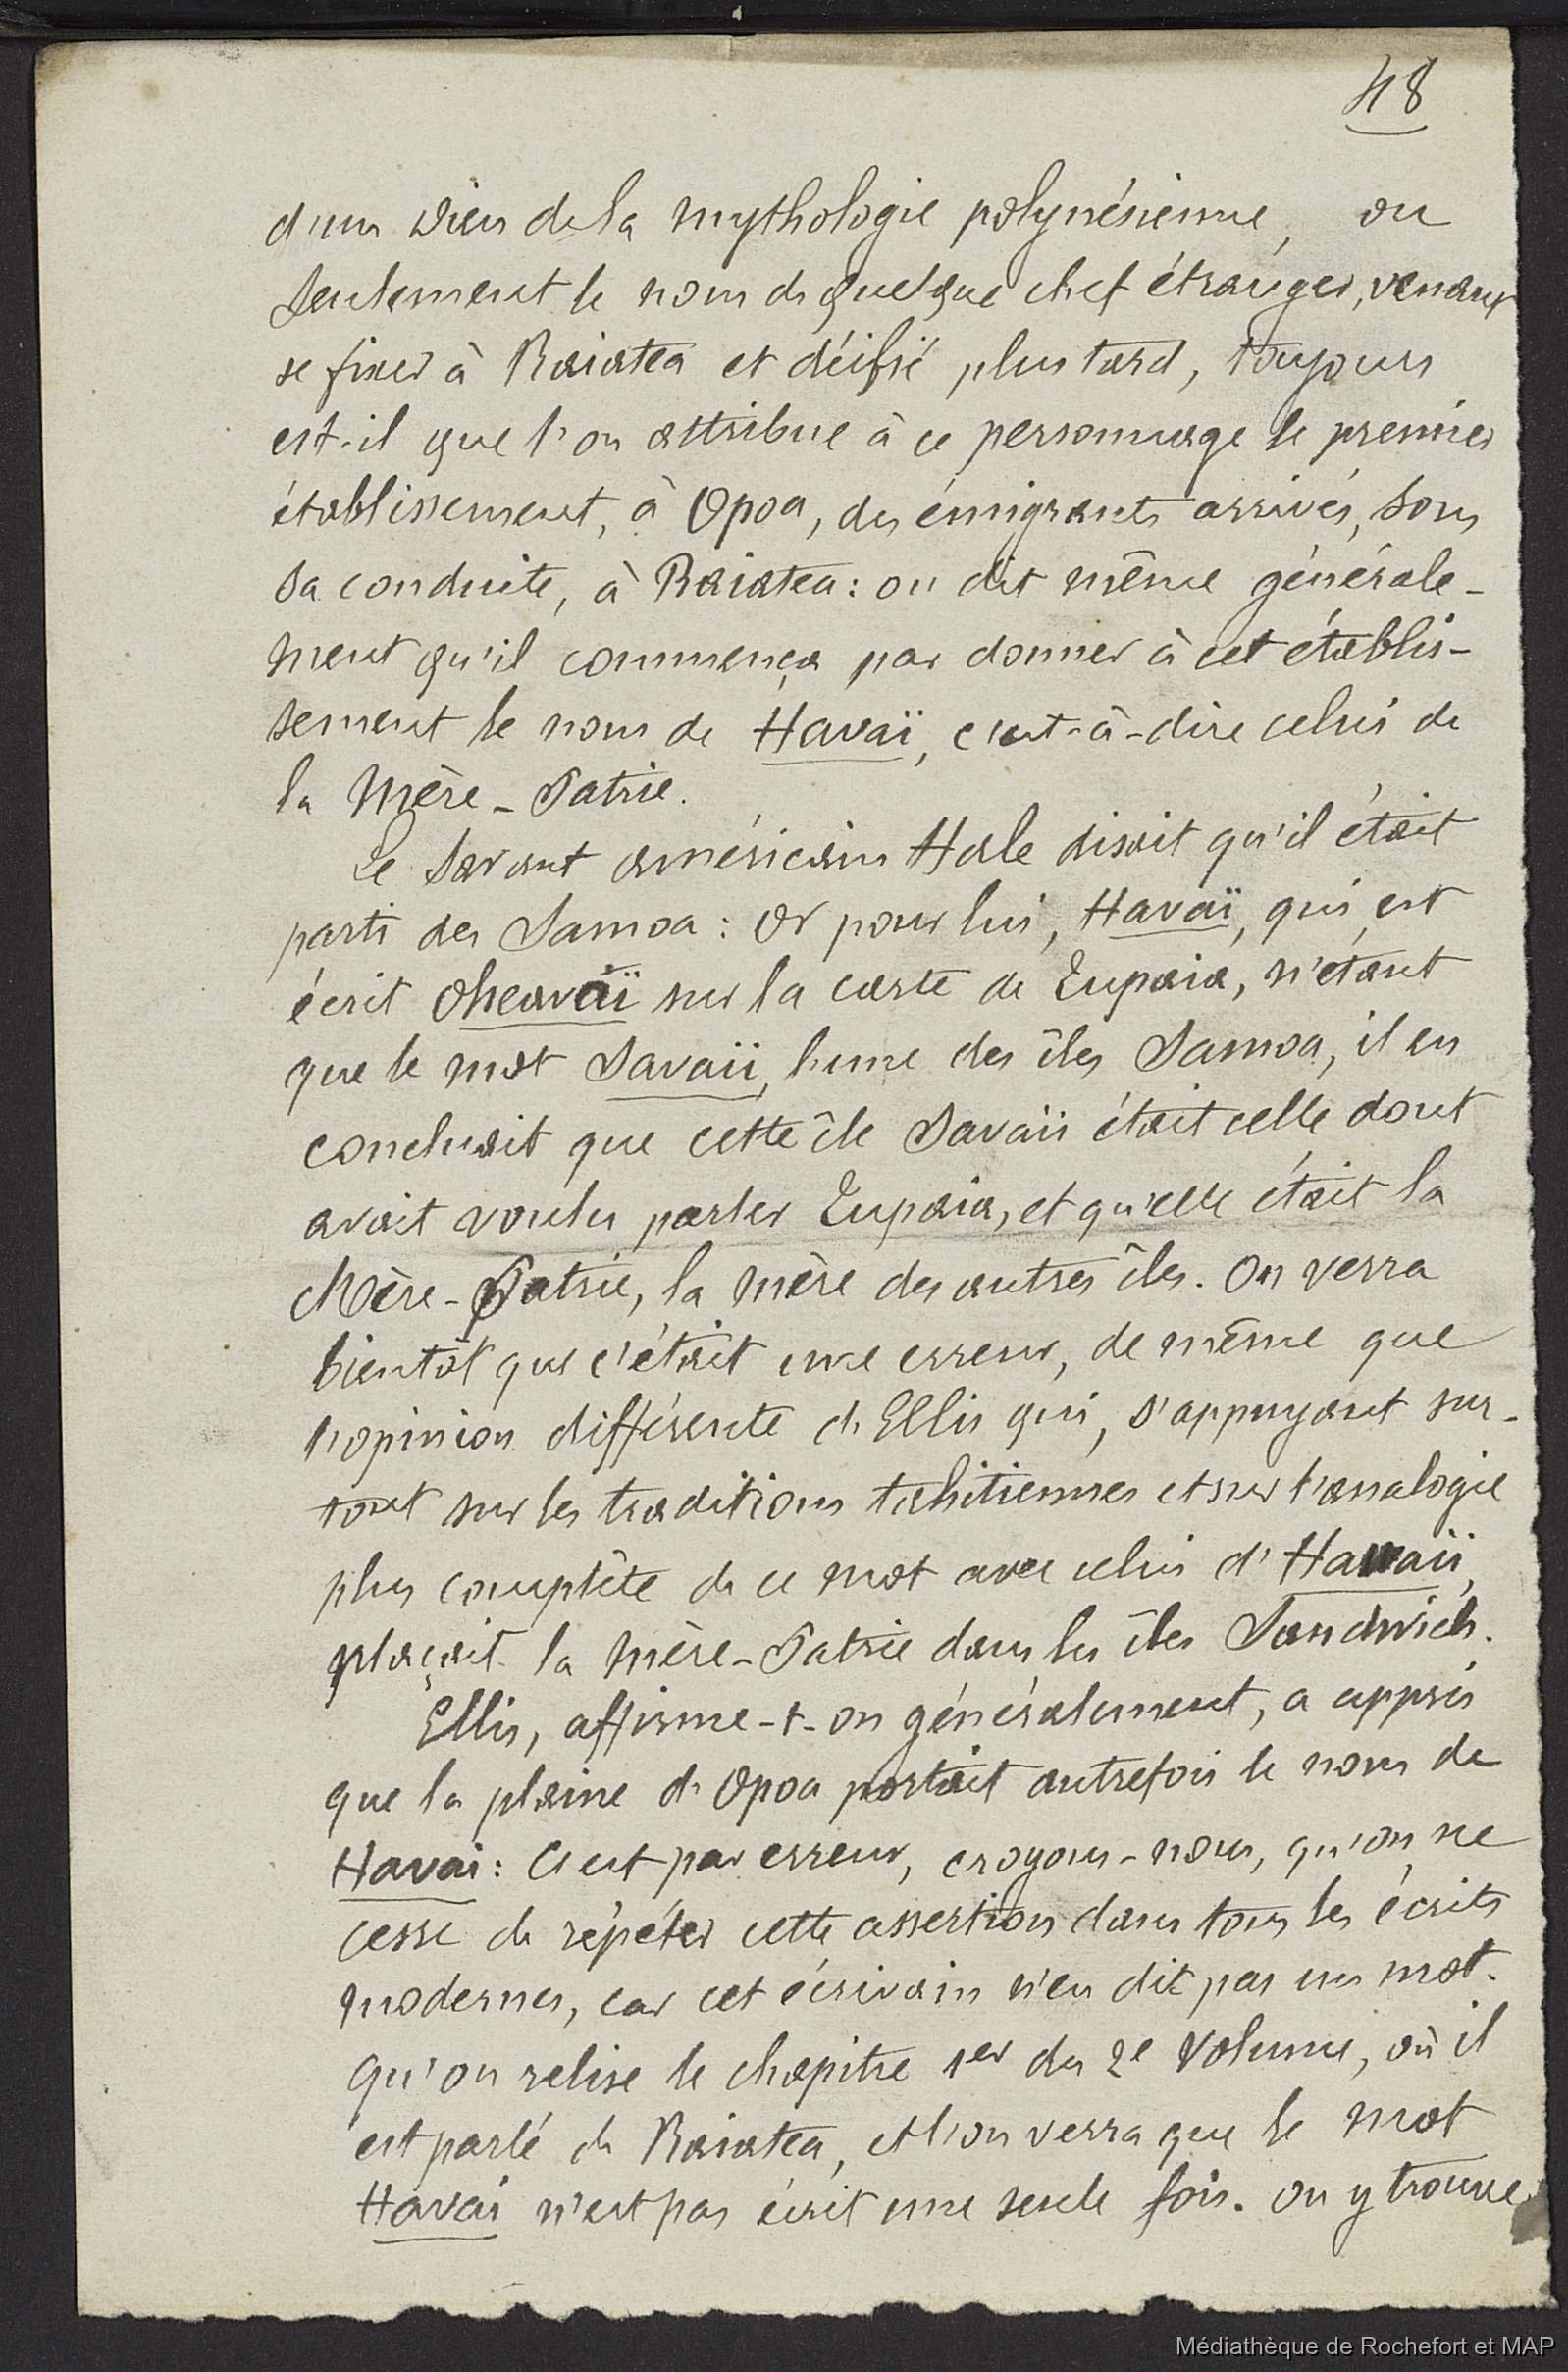 48
d'un Dieu de la mythologie polynésienne, ou
seulement le nom de quelque chef étranger, venant
se fixer à Raiatea et déifié plus tard, toujours
est-il que l'on attribue à ce personnage le premier
établissement, à Opoa, des émigrants arrivés, sous
sa conduite, à Raiatea : on dit même générale-
ment qu'il commença par donner à cet établis-
sement le nom de Havaï, c'est-à-dire celui de
la Mère-Patrie.
Le savant américain Hale disait qu'il était
parti des Samoa : or pour lui, Havaï, qui est
écrit Oheavaï sur la carte de Tupaia, n'étant
que le mot Savaii, l'une des îles Samoa, il en
concluait que cette île Savaii était celle dont
avait voulu parler Tupaia, et qu'elle était la
Mère-Patrie, la mère des autres îles. On verra
bientôt que c'était une erreur, de même que
l'opinion différente d'Ellis qui, s'appuyant sur-
tout sur les traditions tahitiennes et sur l'analogie
plus complète de ce mot avec celui d'Hawaii,
plaçait la Mère-Patrie dans les îles Sandwich.
Ellis, affirme-t-on généralement, a appris
que la plaine d'Opoa portait autrefois le nom de
Havai : C'est par erreur, croyons-nous, qu'on ne
cesse de répéter cette assertion dans tous les écrits
modernes, car cet écrivain n'en dit pas un mot.
qu'on relise le chapitre 1er du 2e volume, où il
est parlé de Raiatea, et l'on verra que le mot
Havai n'est pas écrit une seule fois. On y trouve
Médiathèque de Rochefort et MAP